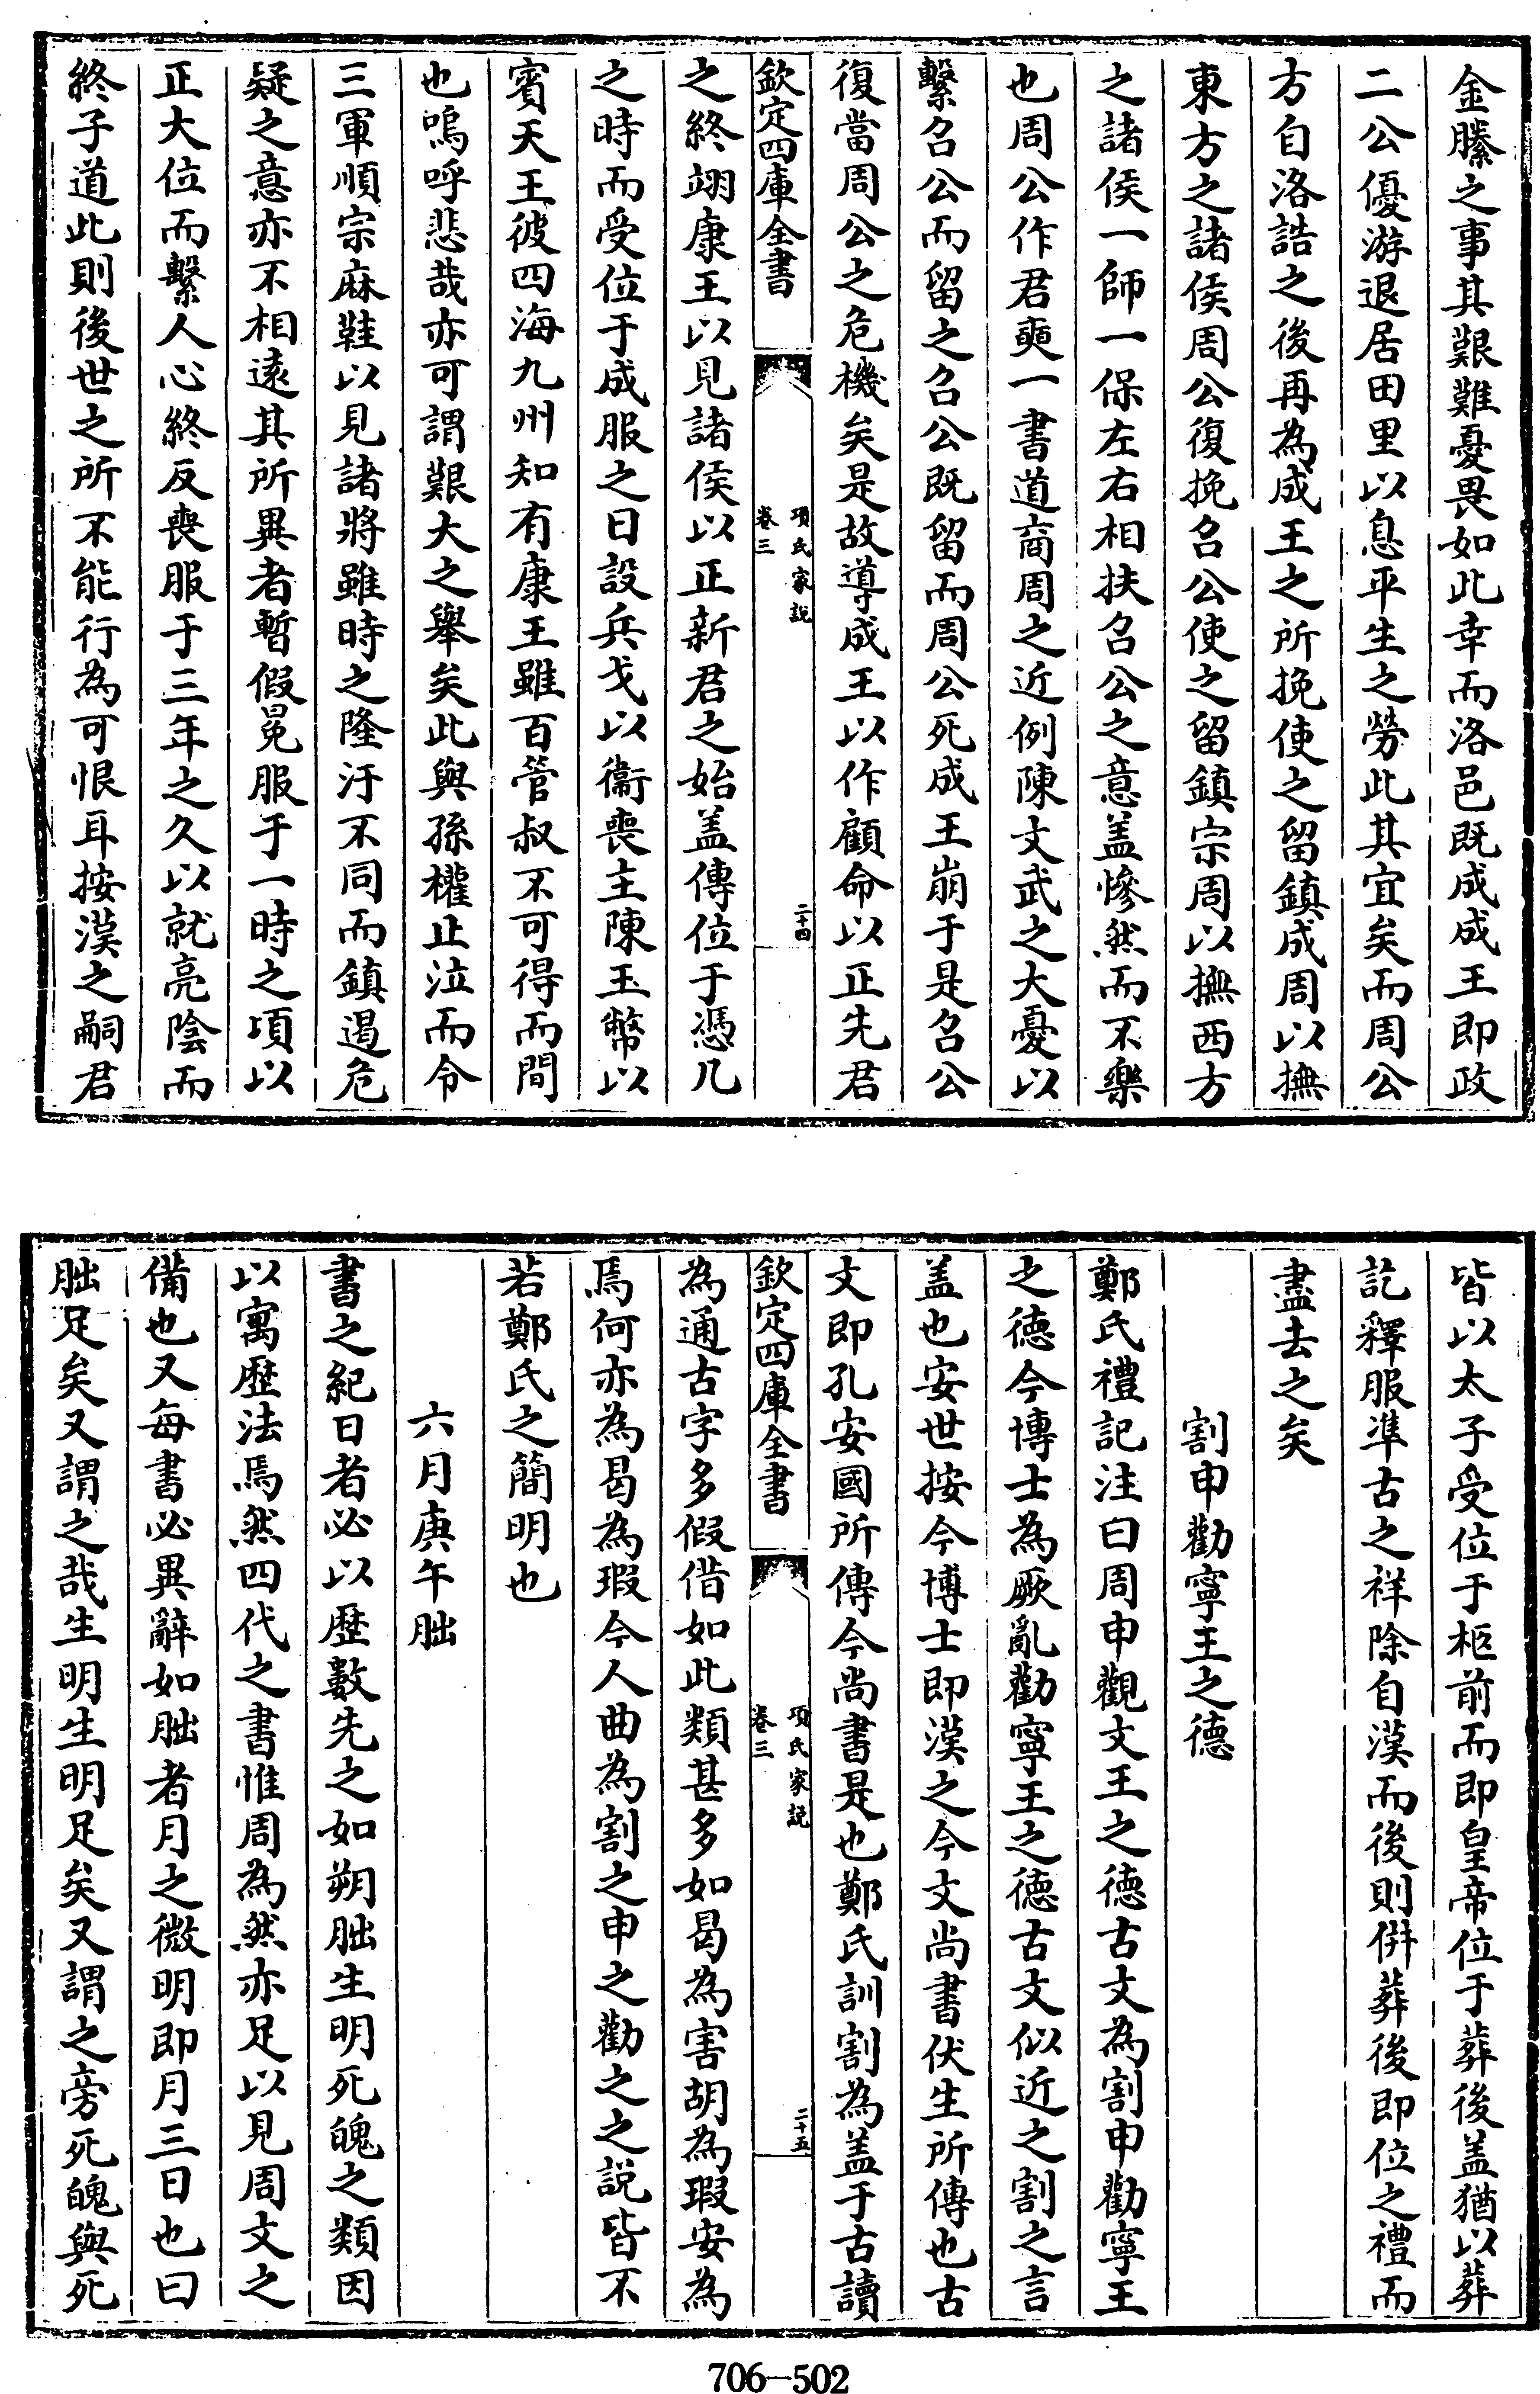 金縢之事其艱難憂畏如此幸而洛邑既成成王即政
二公優游退居田里以息平生之勞此其宜矣而周公
方自洛誥之後再為成王之所挽使之留鎮成周以撫
東方之諸侯周公復挽召公使之留鎮宗周以撫西方
之諸侯一師一保左右相扶召公之意盖慘然而不樂
也周公作君奭一書道商周之近例陳文武之大憂以
繫召公而留之召公既留而周公死成王崩于是召公
復當周公之危機矣是故導成王以作顧命以正先君
欽定四庫全書
項氏家說
卷三
二十四
之終翊康王以見諸侯以正新君之始盖傳位于憑几
之時而受位于成服之日設兵戈以衞喪主陳玉幣以
賓天王彼四海九州知有康王雖百管叔不可得而間
也嗚呼悲哉亦可謂艱大之舉矣此與孫權止泣而令
三軍順宗麻鞋以見諸將雖時之隆汙不同而鎮遏危
疑之意亦不相遠其所異者暫假冕服于一時之頃以
正大位而繫人心終反喪服于三年之久以就亮陰而
終子道此則後世之所不能行為可恨耳按漢之嗣君
皆以太子受位于柩前而即皇帝位于葬後盖猶以葬
訖釋服準古之祥除自漢而後則併葬後即位之禮而
盡去之矣
割申勸寧王之德
鄭氏禮記注曰周申觀文王之德古文為割申勸寧王
之德今博士為厥亂勸寧王之德古文似近之割之言
盖也安世按今博士即漢之今文尚書伏生所傳也古
文即孔安國所傳今尚書是也鄭氏訓割為盖于古讀
欽定四庫全書
項氏家說
卷三
二十五
為通古字多假借如此類甚多如曷為害胡為瑕安為
焉何亦為曷為瑕今人曲為割之申之勸之之說皆不
若鄭氏之簡明也
六月庚午朏
書之紀日者必以歴數先之如朔朏生明死魄之類因
以寓歴法焉然四代之書惟周為然亦足以見周文之
備也又每書必異辭如朏者月之微明即月三日也曰
朏足矣又謂之哉生明生明足矣又謂之旁死魄與死
706—502